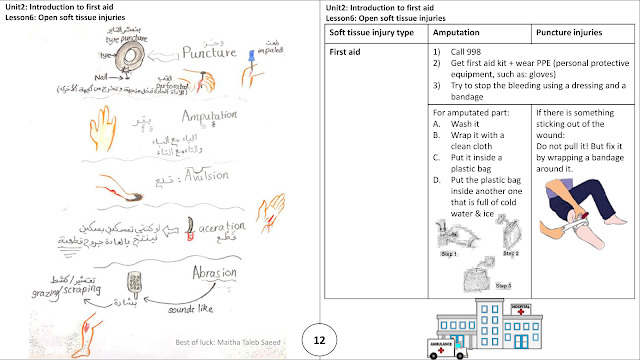 Unit2: Introduction to first aid
Lesson6: Open soft tissue injuries
tyre puncture
tyre
Nail
Puncture
impaled
perforated
Amputation
بتر
الباء مع الباء
والتاء مع التاء
Avulsion : قلع
aceration
قطع
Abrasion
grazing/scraping
sounds like
Best of luck: Maitha Taleb Saeed
12
Unit2: Introduction to first aid
Lesson6: Open soft tissue injuries
Soft tissue injury type
Amputation
Puncture injuries
First aid
1) Call 998
2) Get first aid kit + wear PPE (personal protective
equipment, such as: gloves)
3) Try to stop the bleeding using a dressing and a
bandage
For amputated part:
A. Wash it
B. Wrap it with a
clean cloth
C. Put it inside a
plastic bag
D. Put the plastic bag
inside another one
that is full of cold
water & ice
Step 1
Step 2
Step 3
If there is something
sticking out of the
wound:
Do not pull it! But fix it
by wrapping a bandage
around it.
HOSPITAL
AMBULANCE